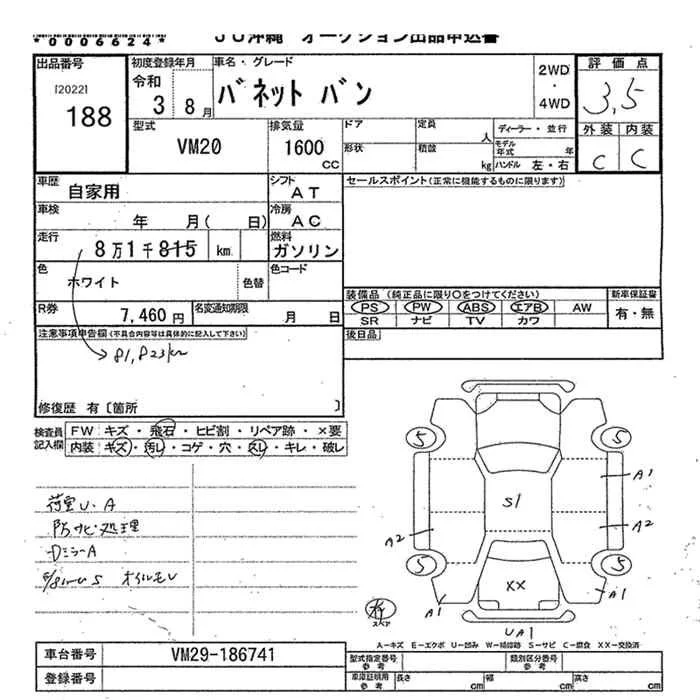 *0006624*
JU沖縄 オークション出品申込書
出品番号
[2022]
188
初度登録年月
令和
3 8月
車名・グレード
バネット バン
2WD
・
4WD
評価点
3,5
外装 内装
C C
型式
VM20
排気量
1600
CC
ドア
定員
人
形状
積載
kg
ディーラー・並行
モデル年式 年
ハンドル 左・右
車歴
自家用
シフト
AT
車検
年 月( 日)
冷房
AC
走行
8万1千815 km
燃料
ガソリン
色
ホワイト
色替
色コード
R券
7,460円
名変通知期限
月 日
セールスポイント(正常に機能するものに限ります)
装備品(純正品に限り○をつけてください)
PS PW ABS エアB AW
SR ナビ TV カワ
新車保証書
有・無
後日品
注意事項申告欄(不具合内容等は具体的に記入して下さい)
81,823km
修復歴 有〔箇所 〕
検査員記入欄
FW キズ・飛石・ヒビ割・リペア跡・×要
内装 キズ・汚レ・コゲ・穴・スレ・キレ・破レ
荷室U.A
防サビ処理
DミラーA
オイルモレ
5 5
A1
S1
A2 A2
5 5
XX
A1 A1
スペア
UA1
A-キズ E-エクボ U-凹み W-補修跡 S-サビ C-腐食 XX-交換済
車台番号
VM29-186741
登録番号
型式指定番号
参考
類別区分番号
参考
車庫証明用
参考
長さ cm 幅 cm 高さ cm